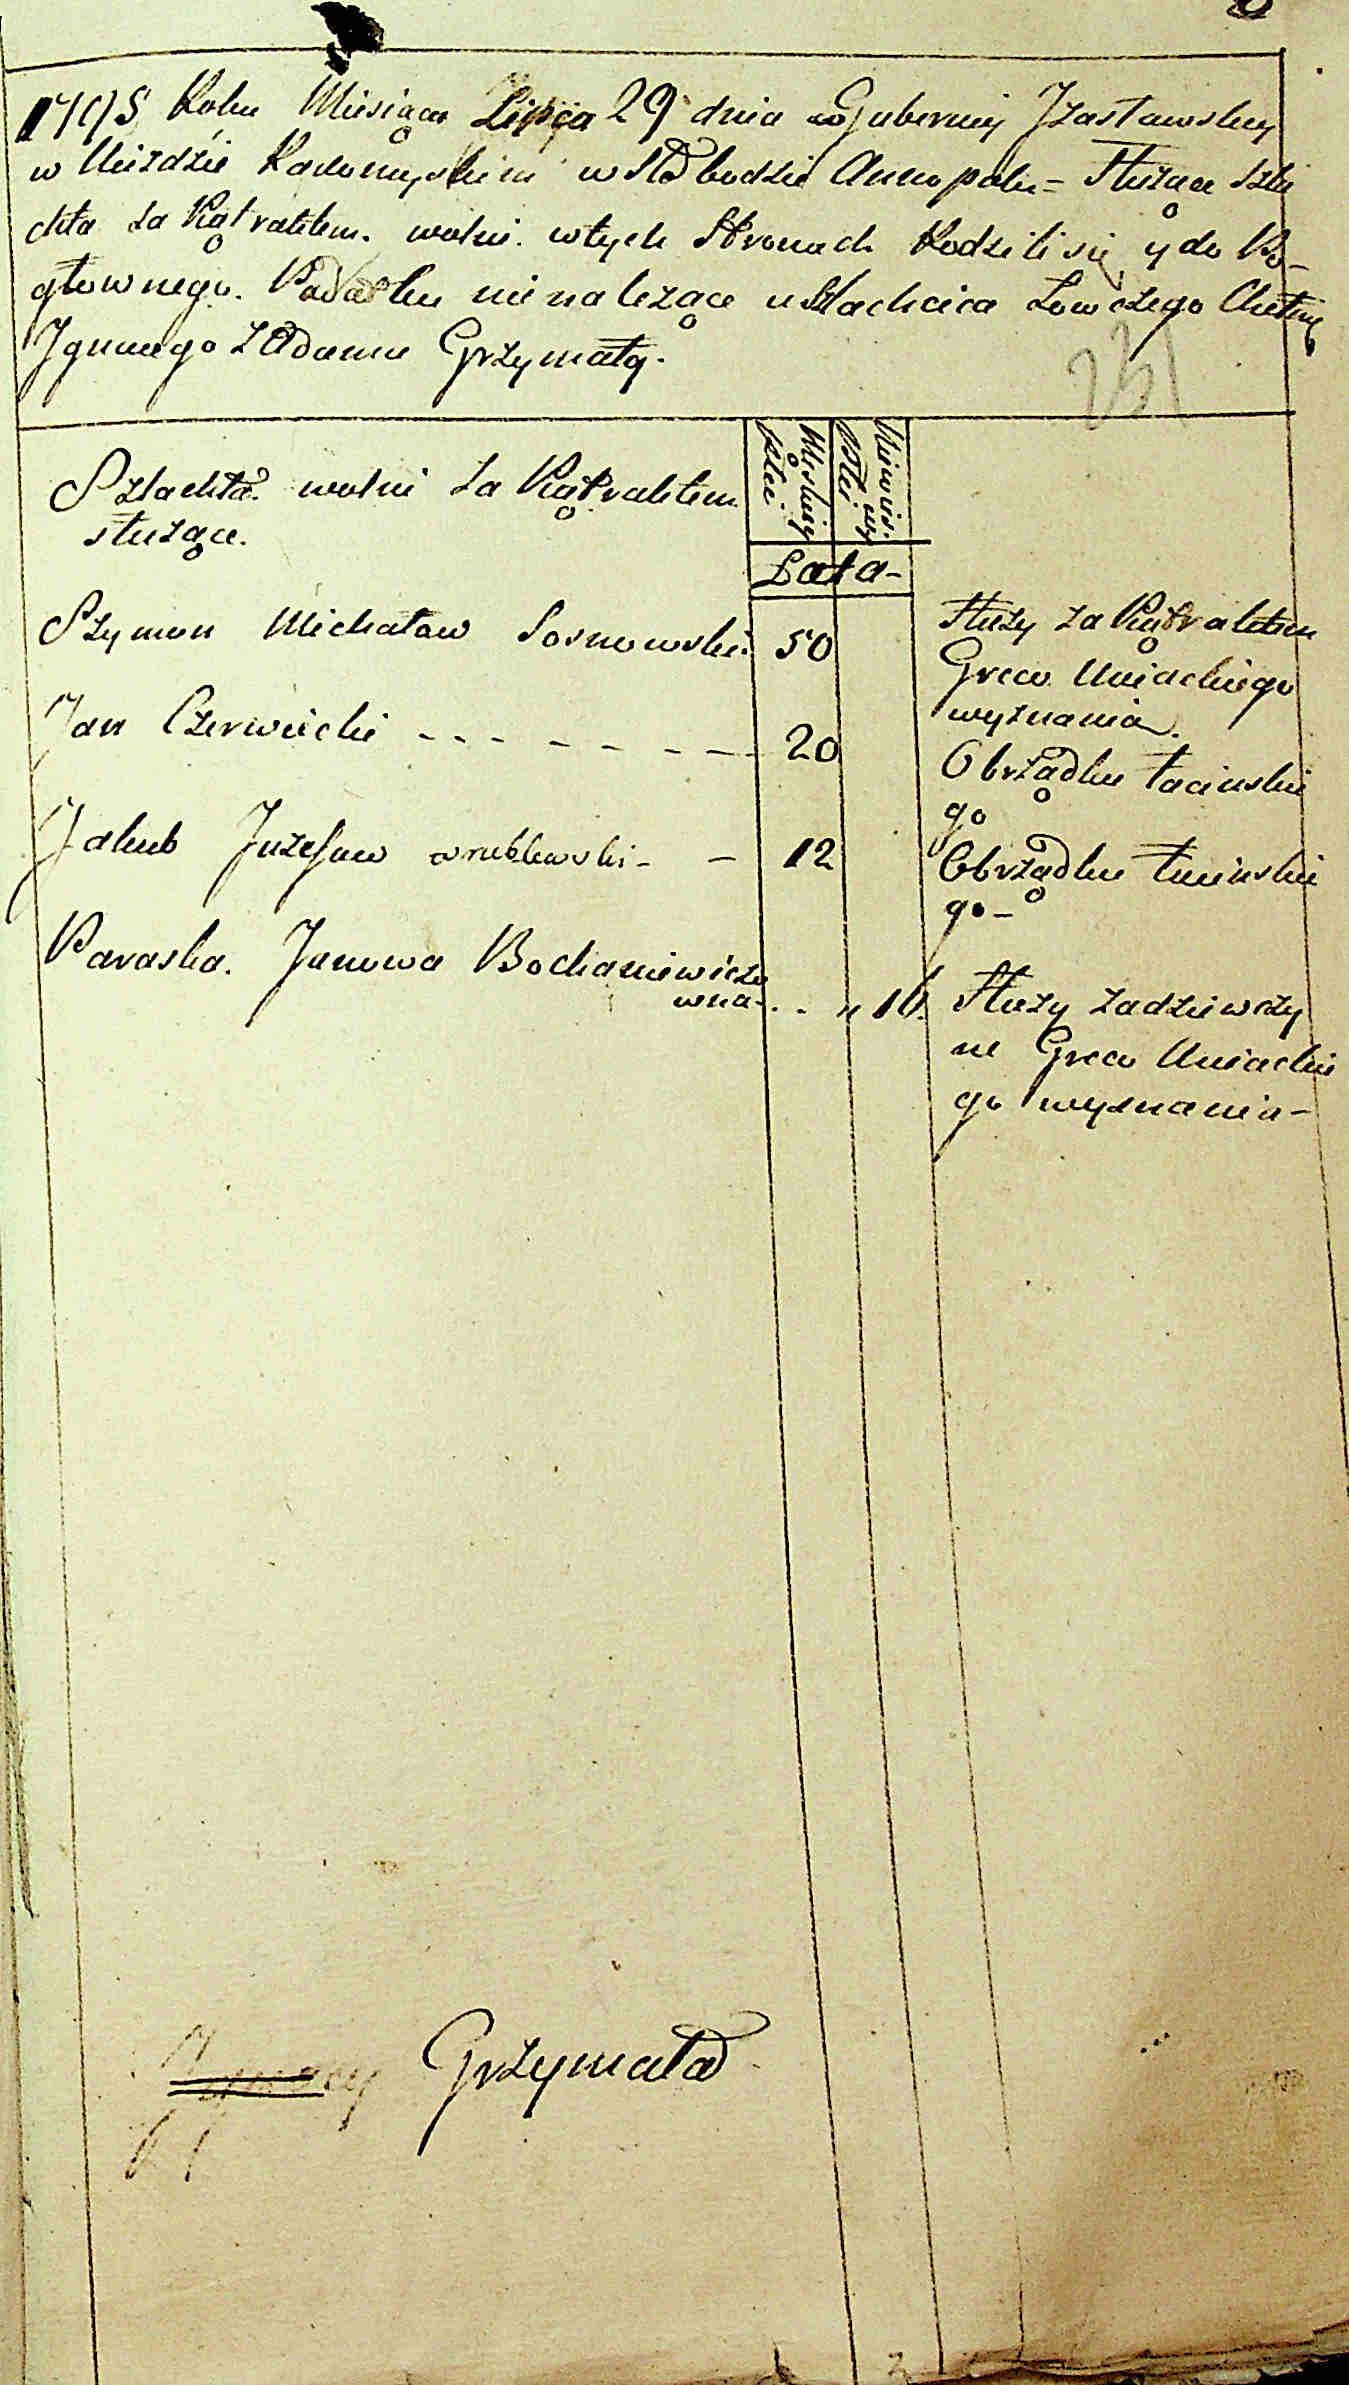 1795 Roku Miesiąca Lipca 29 dnia w Guberniy Jzasławskiey
w Uiezdzie Radomyskim w Słobodzie Annopolu = Służące Szla
chta za Kątraktem. wolni. w tych Stronach Rodzili się y do Po-
głownego. Podatku nie należące u Slachcica Łowczego
Jgnacego z Adama Grzymały.
231
Szlachta. wolni za Kątraktem
służące.
Męskiey
Płci.
Niewieś.
Płci
Lata-
Szymon Michałow Sosnowski. 50 Służy za Kątraktem
Greco Uniackiego
wyznania.
Jan Czerwiecki - - - - - - - - 20 Obrządku łacinskie
go
Jakub Juzefow wrublewski - - 12 Obrządku łacinskie
go-
Paraska. Janowa Bochaniewiczo
wna- . . „ 16. Służy za dziewczy
ne Greco Uniackie
go wyznania-
Grzymała